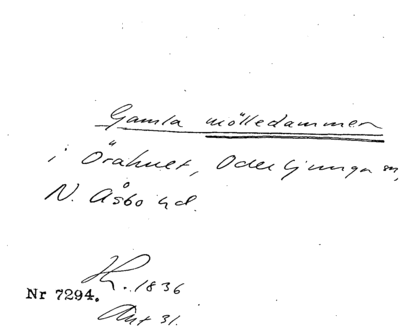 Gamla mölledammen
i Örahult, Oderljunga sn,
N. Åsbo hd.
H. 1836
Nr 7294.
Ant 31.